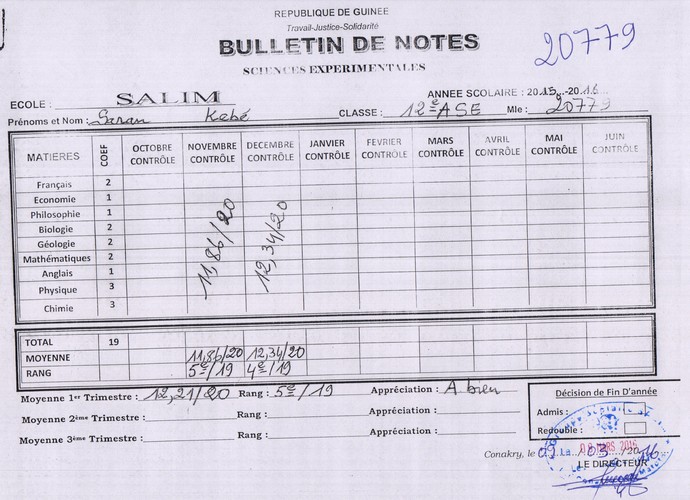 REPUBLIQUE DE GUINEE
Travail-Justice-Solidarité
BULLETIN DE NOTES
SCIENCES EXPERIMENTALES
20779
ANNEE SCOLAIRE : 2015-2016
ECOLE : SALIM
Prénoms et Nom : Saran Kebé CLASSE : 12e ASE Mle : 20779
MATIERES COEF OCTOBRE CONTRÔLE NOVEMBRE CONTRÔLE DECEMBRE CONTRÔLE JANVIER CONTRÔLE FEVRIER CONTRÔLE MARS CONTRÔLE AVRIL CONTRÔLE MAI CONTRÔLE JUIN CONTRÔLE
Français 2
Economie 1
Philosophie 1
Biologie 2
Géologie 2
Mathématiques 2
Anglais 1
Physique 3
Chimie 3
11,86/20
12,34/20
TOTAL 19
MOYENNE 11,86/20 12,34/20
RANG 5e/19 4e/19
Moyenne 1er Trimestre : 12,21/20 Rang : 5e/19 Appréciation : A bien
Moyenne 2ème Trimestre : Rang : Appréciation :
Moyenne 3ème Trimestre : Rang : Appréciation :
Décision de Fin D'année
Admis :
Redouble :
MARS 2016
Conakry, le 09/03/2016
LE DIRECTEUR